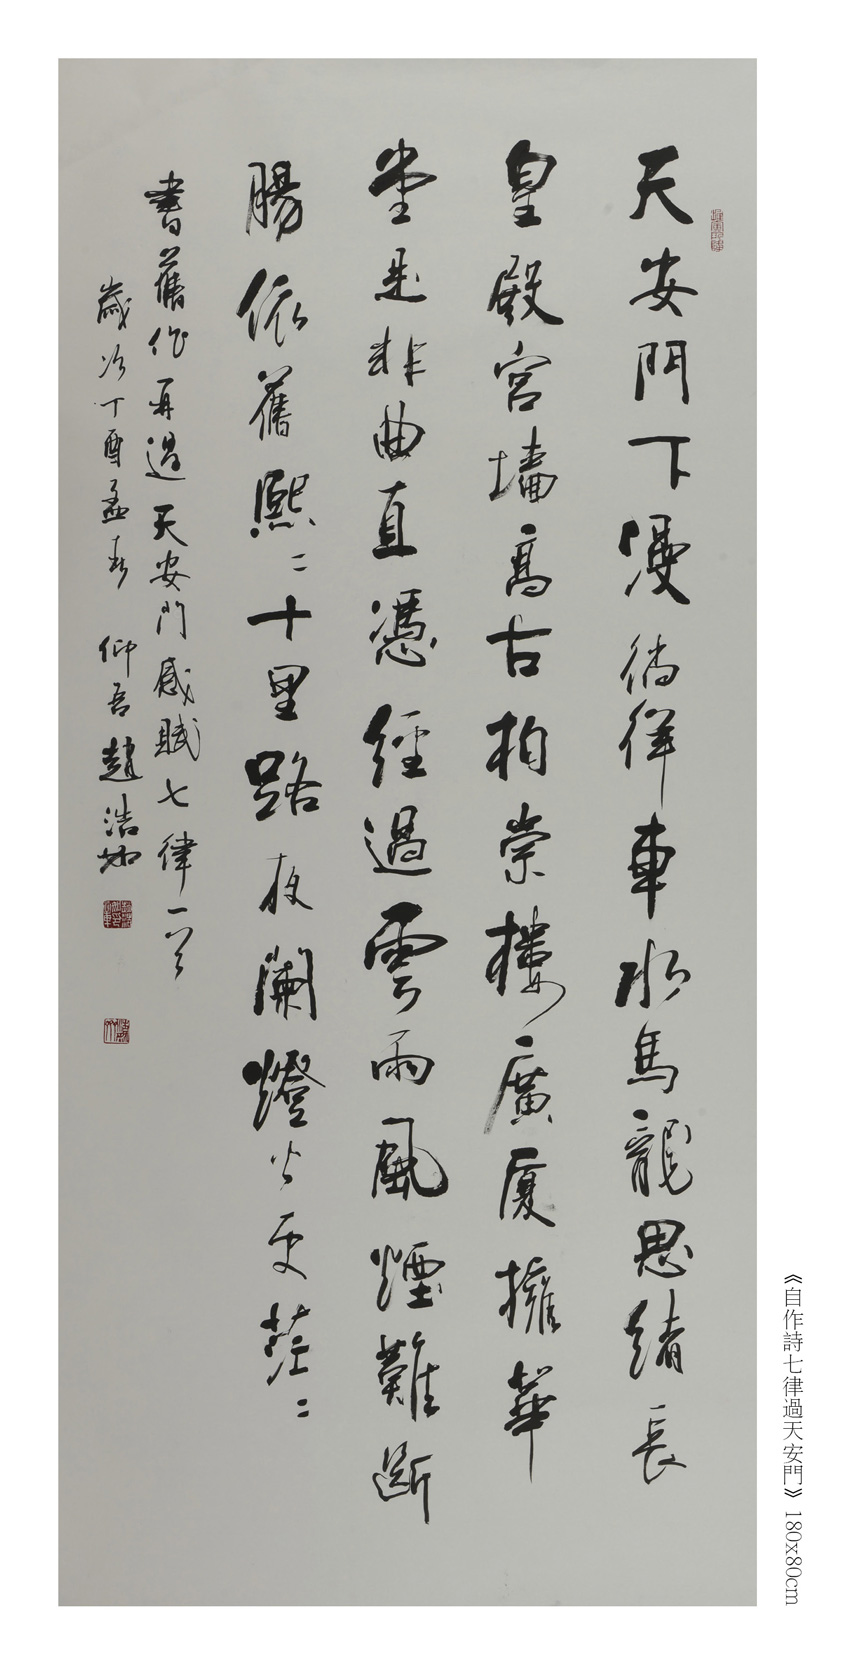 天安門下漫徜徉車水馬龍思緒長
皇殿宮墻高古柏崇樓廣厦擁華
堂是非曲直憑經過雲雨風煙難斷
腸依舊熙〻十里路夜闌燈火更茫〻
書舊作再過天安門感賦七律一首
歲次丁酉孟春 仰吾趙浩如
《自作詩七律過天安門》 180x80cm